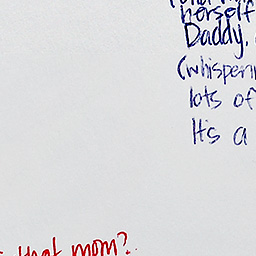 herself
Daddy.
(whisperin
lots of
It's a
that mom?